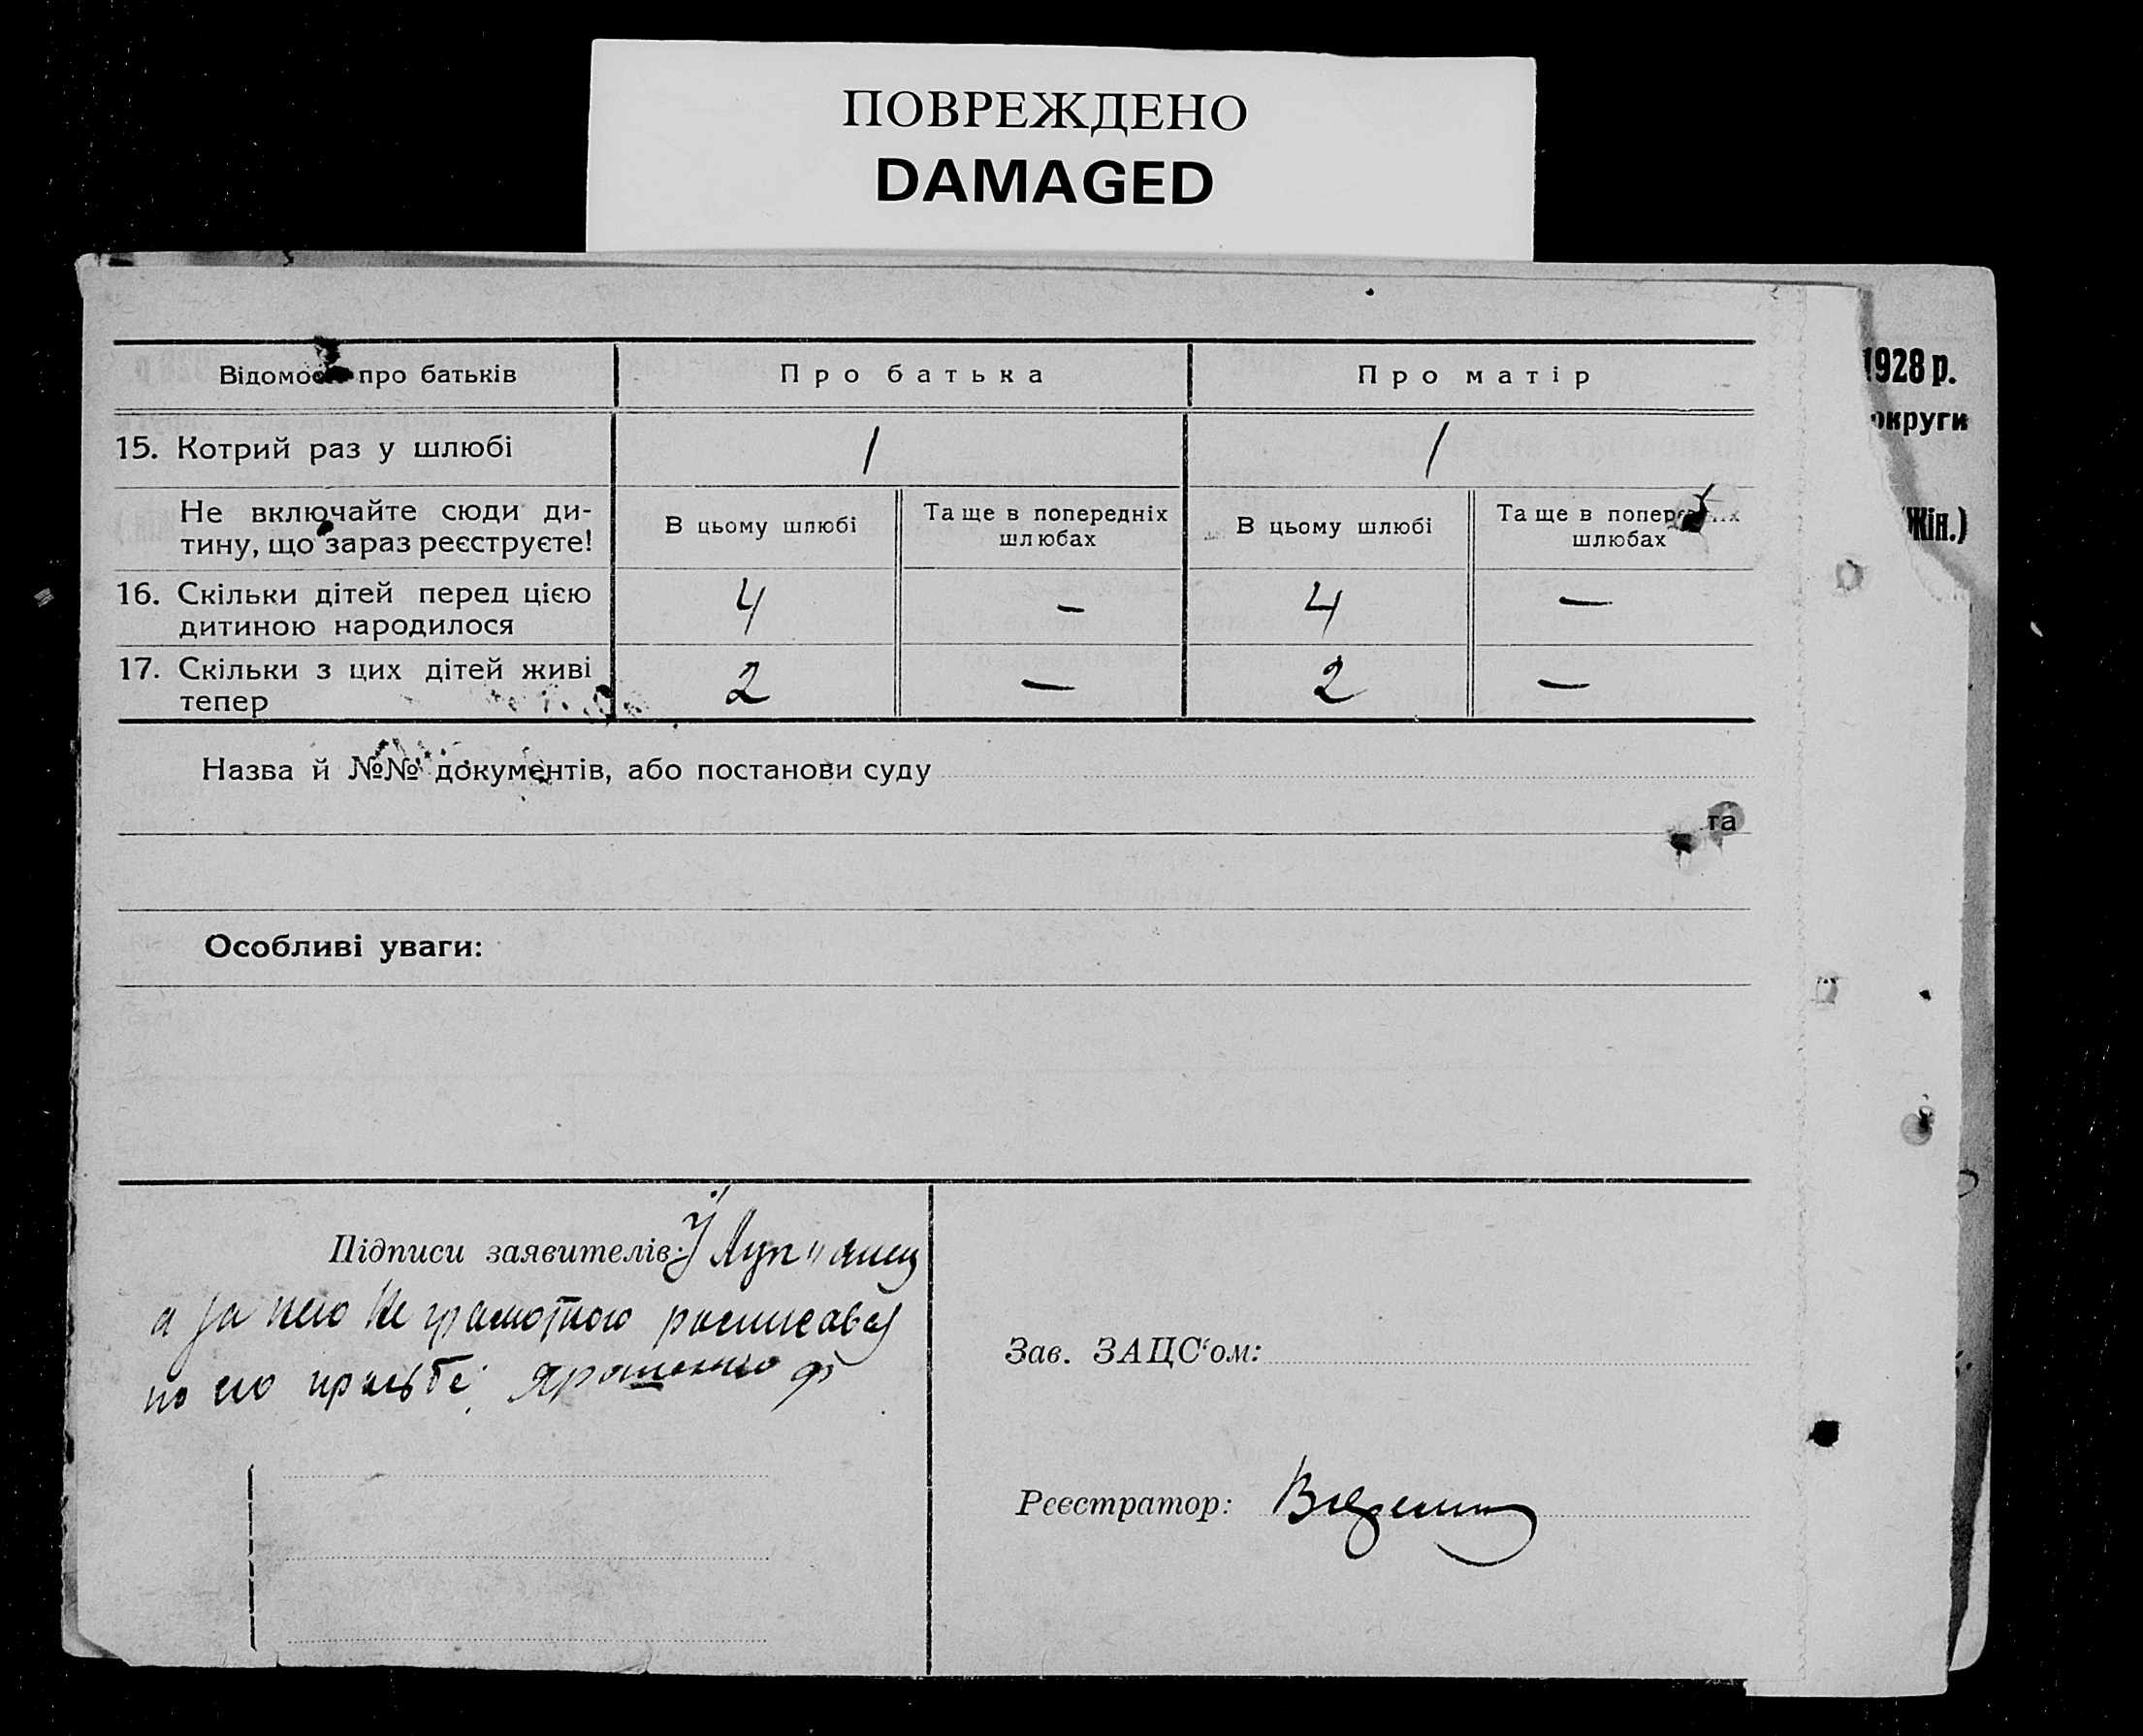 ПОВРЕЖДЕНО
DAMAGED
Відомос про батьків
Про батька
Про матір
1928 р.
округи
15. Котрий раз у шлюбі
1
1
Не включайте сюди ди-
тину, що зараз реєструєте!
В цьому шлюбі
Та ще в попередніх
шлюбах
В цьому шлюбі
Та ще в попередніх
шлюбах
(Жін.)
16. Скільки дітей перед цією
дитиною народилося
4
—
4
—
17. Скільки з цих дітей живі
тепер
2
—
2
—
Назва й №№ документів, або постанови суду
та
Особливі уваги:
Підписи заявителів:
а за него не грамотного росписавсь
по его прозьбе Ярошенко Ф
Зав. ЗАЦС'ом:
Реєстратор: